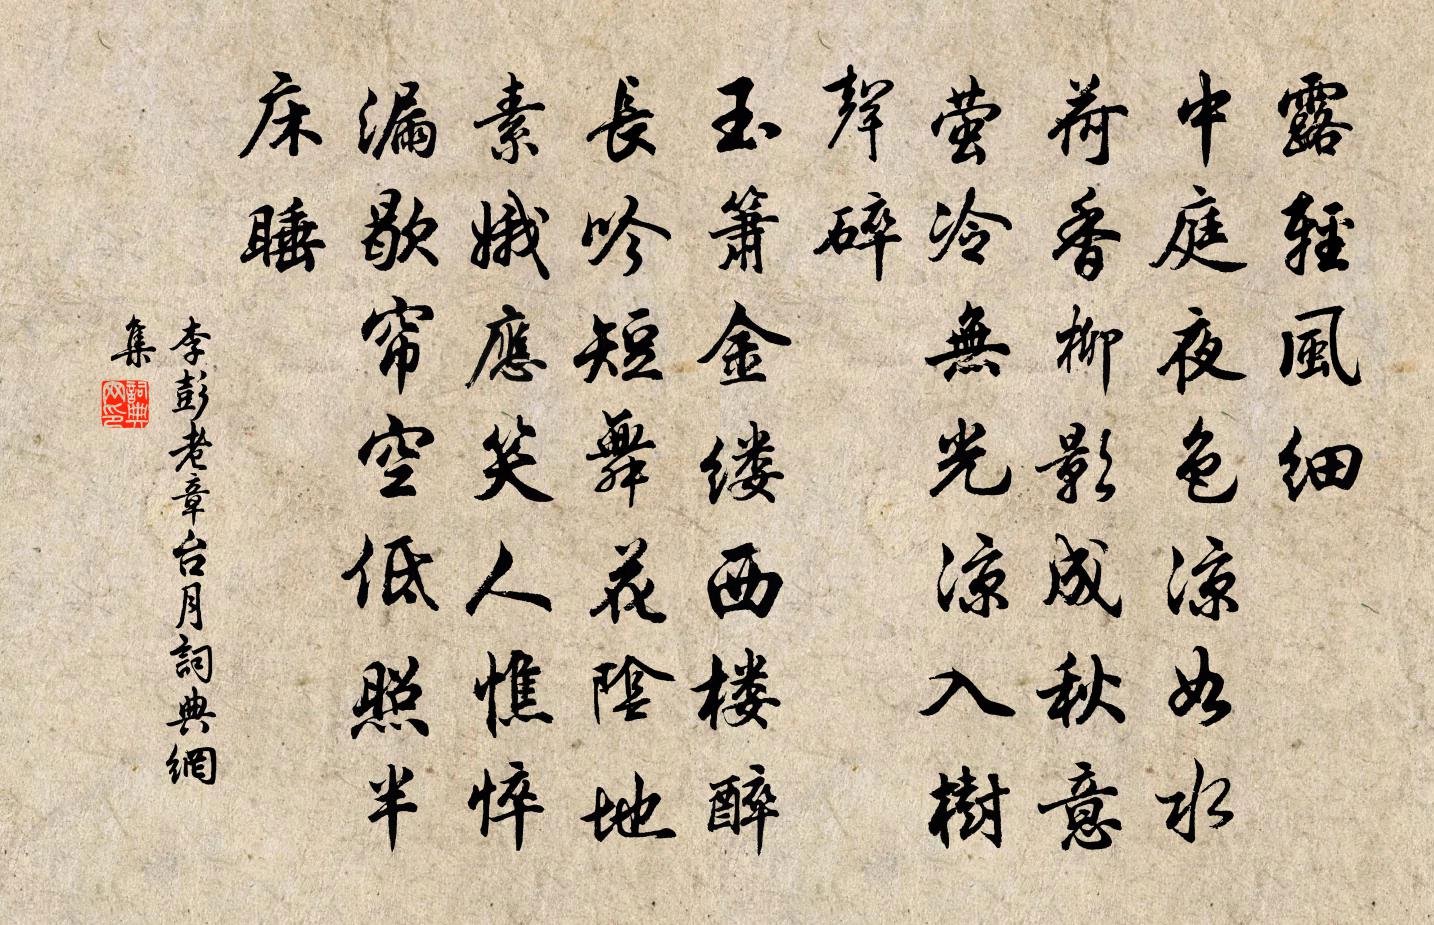 露輕風細
中庭夜色凉如水
荷香柳影成秋意
萤冷無光凉入樹
聲碎
玉箫金缕西楼醉
長吟短舞花陰地
素娥應笑人憔悴
漏歇帘空低照半
床睡
李彭老章台月詞典網
集
詞典
网印